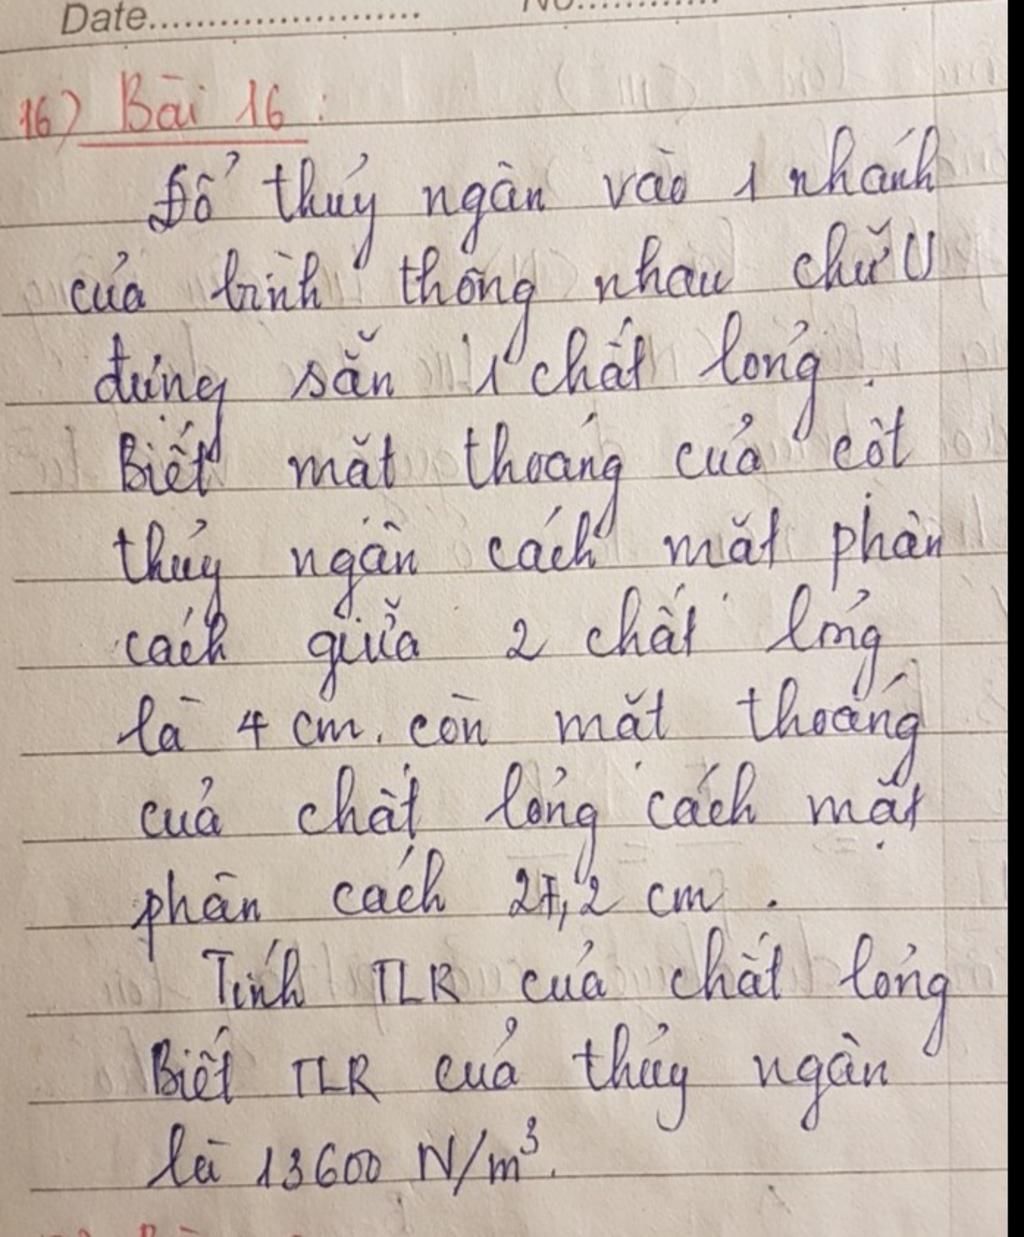 Date......................... No..............
16) Bài 16 :
Đổ thủy ngân vào 1 nhánh
của bình thông nhau chữ U
đựng sẵn 1 chất lỏng.
Biết mặt thoáng của cột
thủy ngân cách mặt phân
cách giữa 2 chất lỏng
là 4 cm. còn mặt thoáng
của chất lỏng cách mặt
phân cách 27,2 cm.
Tính TLR của chất lỏng
Biết TLR của thủy ngân
là 13600 N/m³.